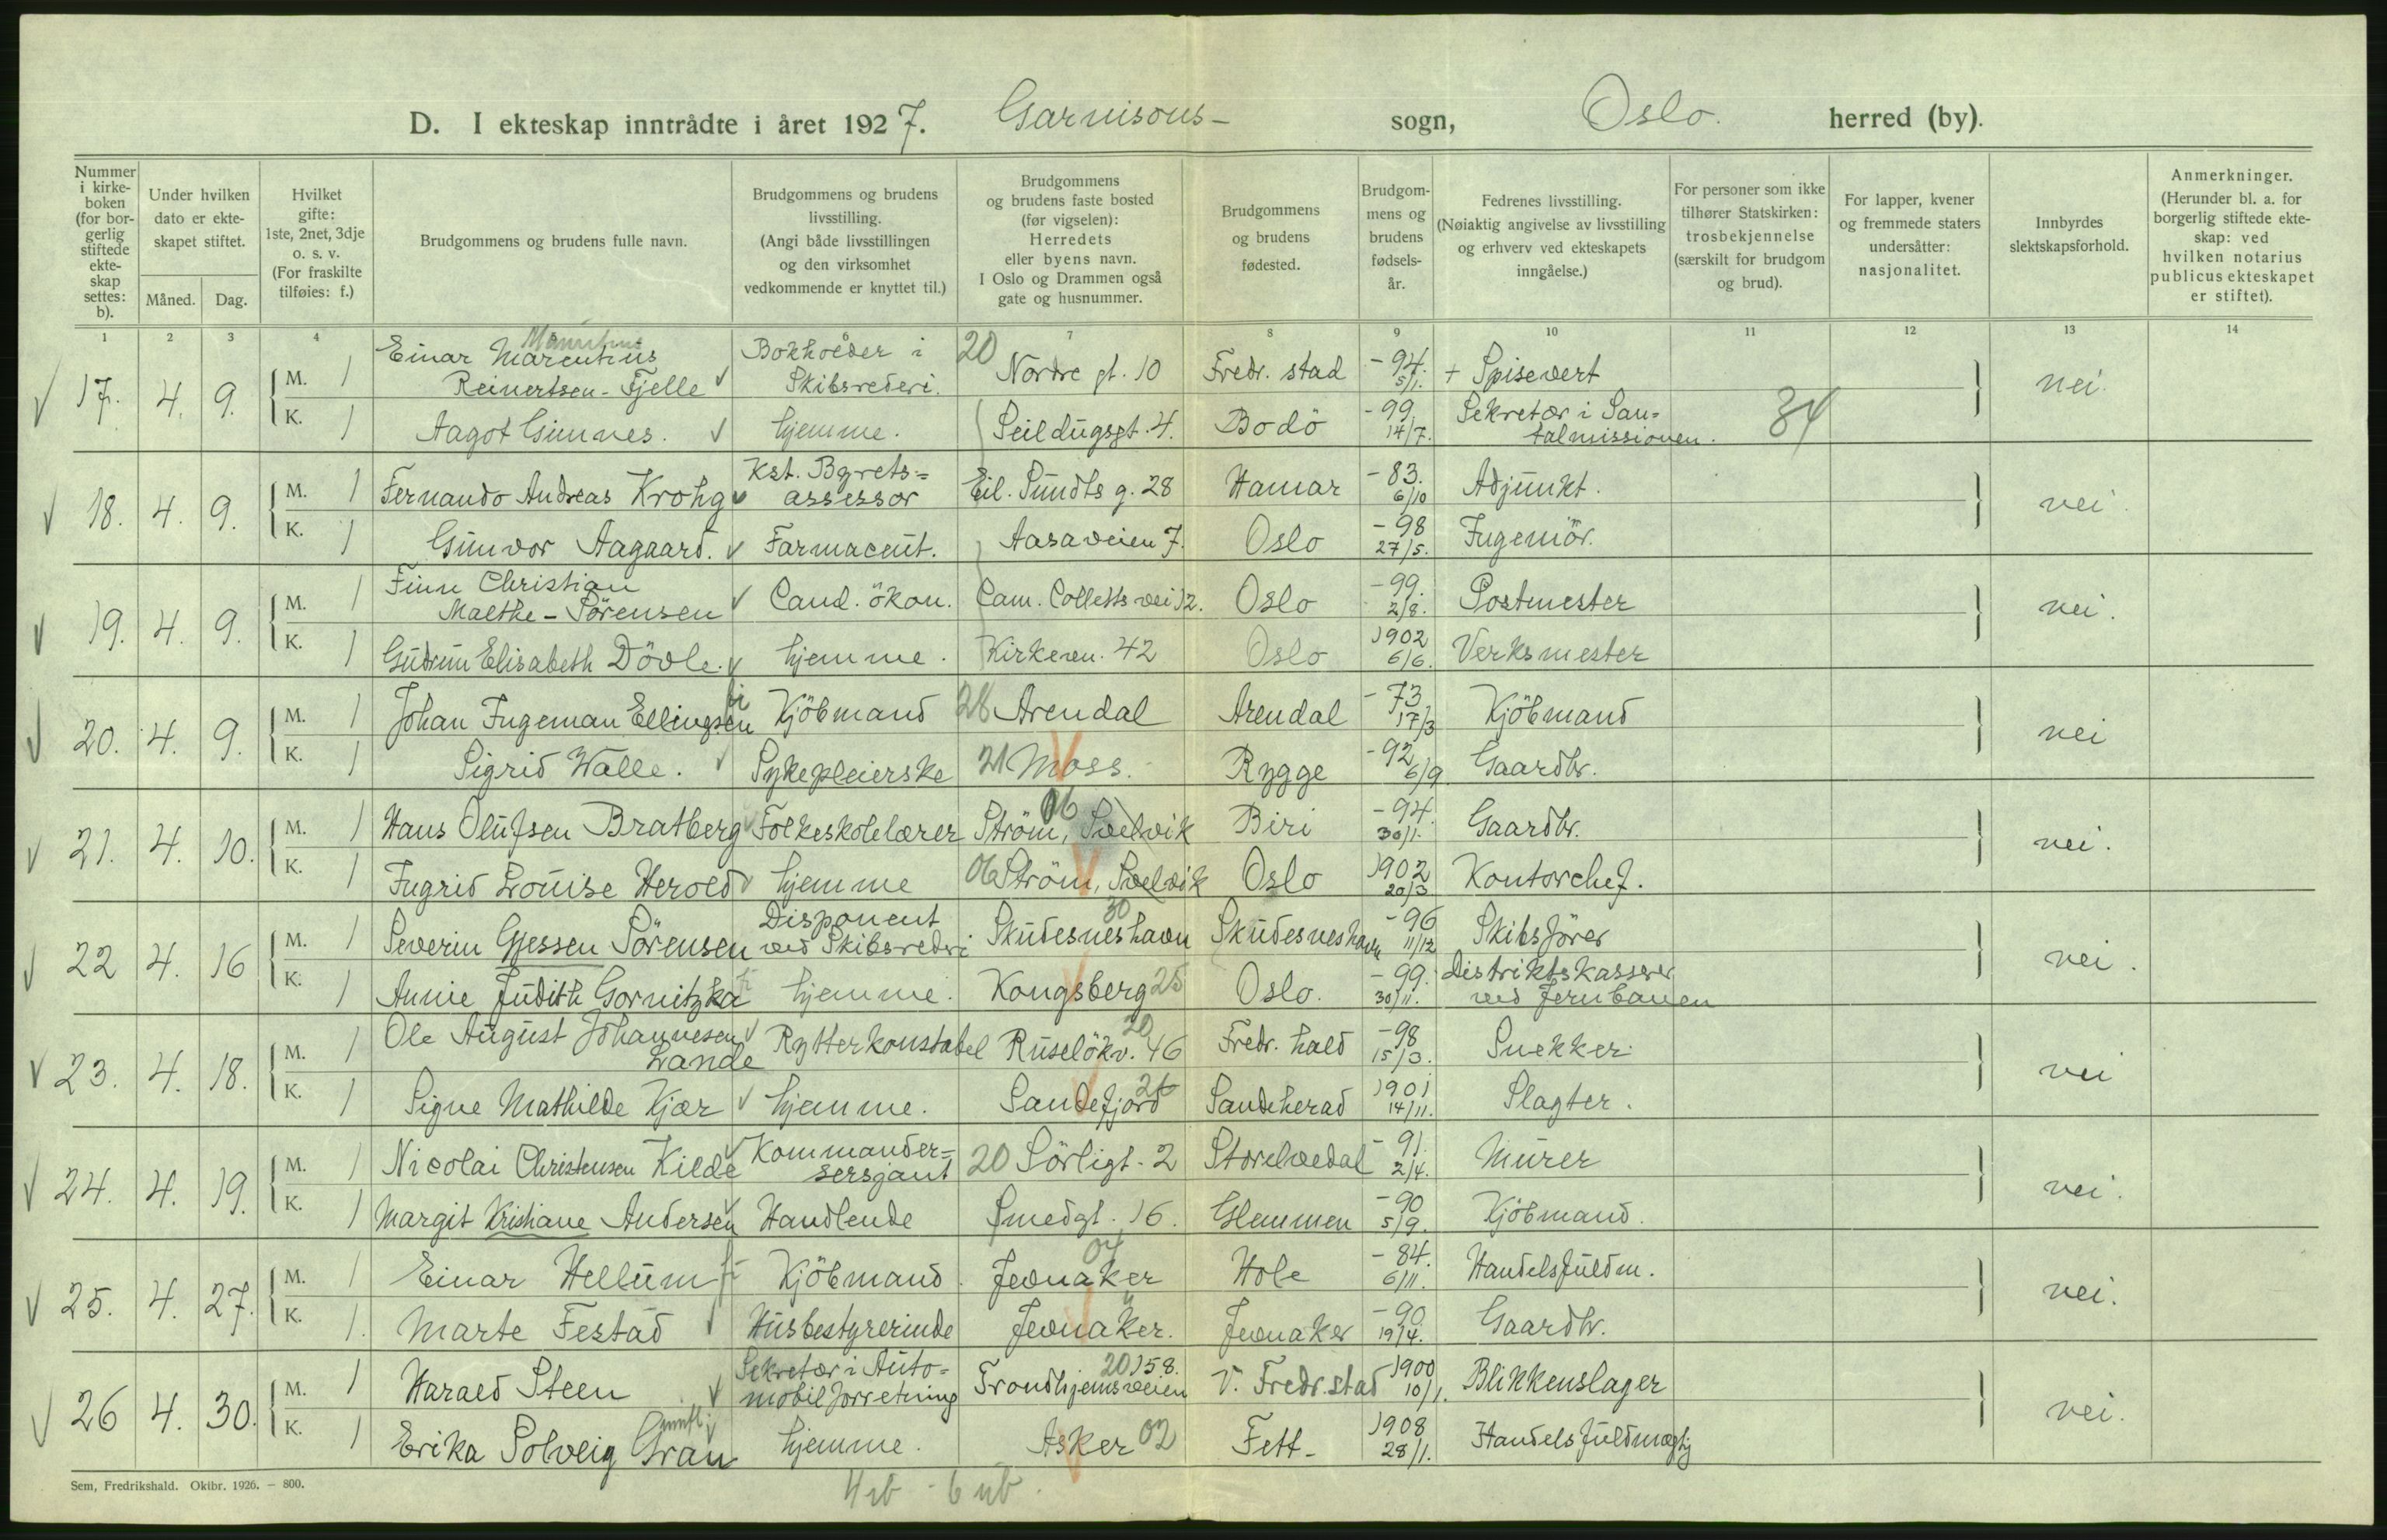 D. I ekteskap inntrådte i året 1927. Garnisons- sogn, Oslo. herred (by).
Nummer i kirke-boken (for bor-gerlig stiftede ekte-skap settes: b).
Under hvilken dato er ekte-skapet stiftet.
Måned. Dag.
Hvilket gifte: 1ste, 2net, 3dje o. s. v. (For fraskilte tilføies: f.)
Brudgommens og brudens fulle navn.
Brudgommens og brudens livsstilling. (Angi både livsstillingen og den virksomhet vedkommende er knyttet til.)
Brudgommens og brudens faste bosted (før vigselen): Herredets eller byens navn. I Oslo og Drammen også gate og husnummer.
Brudgommens og brudens fødested.
Brudgom-mens og brudens fødsels-år.
Fedrenes livsstilling. (Nøiaktig angivelse av livsstilling og erhverv ved ekteskapets inngåelse.)
For personer som ikke tilhører Statskirken: trosbekjennelse (særskilt for brudgom og brud).
For lapper, kvener og fremmede staters undersåtter: nasjonalitet.
Innbyrdes slektskapsforhold.
Anmerkninger. (Herunder bl. a. for borgerlig stiftede ekte-skap: ved hvilken notarius publicus ekteskapet er stiftet).
1 2 3 4 7 8 9 10 11 12 13 14
17. 4. 9. M. 1 Einar Marentius Reinertsen-Fjelle Bokholder i Skibsrederi. 20 Nordre gt. 10 Fredr.stad -94. 5/1. + Spisevert nei.
K. 1 Aagot Gimnes. hjemme. Seildugsgt. 4. Bodö -99. 14/7. Sekretær i San=talmissionen. 34
18. 4. 9. M. 1 Fernando Andreas Krohg Kst. Byrets=assessor Eil. Sundts g. 28 Hamar -83. 6/10 Adjunkt. nei.
K. 1 Gunvor Aagaard. Farmaceut. Aasaveien 7. Oslo -98 27/5. Ingeniör.
19. 4. 9. M. 1 Finn Christian Malthe-Sörensen Cand. ökon. Cam. Colletts vei 12. Oslo -99. 2/8. Postmester nei.
K. 1 Gudrun Elisabeth Dövle. hjemme. Kirkevn. 42 Oslo 1902 6/6. Verksmester
20. 4. 9. M. 1 Johan Ingeman Ellingsen Kjöbmand 28 Arendal Arendal -73 17/3 Kjöbmand nei
K. 1 Sigrid Walle. Sykepleierske 21 Moss. Rygge -92 6/9 Gaardbr.
21. 4. 10. M. 1 Hans Olufsen Bratberg Folkeskolelærer 06 Ström, Svelvik Biri -94. 30/1. Gaardbr. nei.
K. 1 Ingrid Louise Herold hjemme 06 Ström, Svelvik Oslo 1902 20/3 Kontorchef.
22 4. 16 M. 1 Severin Gjessen Sörensen Disponent ved Skibsrederi Skudesneshavn 30 Skudesneshavn -96 11/12 Skibsförer nei.
K. 1 Annie Judith Gornitzka hjemme. Kongsberg 25 Oslo. -99. 30/11. Distriktskasserer ved Jernbanen
23. 4. 18. M. 1 Ole August Johannesen Lande Rytterkonstabel Ruselökv. 46 20 Fredr.hald -98 15/3. Snekker nei
K. 1 Signe Mathilde Kjær hjemme. Sandefjord 26 Sandeherad 1901 14/11. Slagter.
24. 4. 19. M. 1 Nicolai Christensen Kilde Kommander=sersjant 20 Sörligt. 2 Storelvedal -91. 2/4. Murer nei.
K. 1 Margit Kristiane Andersen Handlende Smedgt. 16. Glemmen -90 5/9. Kjöbmand.
25. 4. 27. M. 1 Einar Hellum Kjöbmand. Jevnaker 04 Hole -84. 6/11. Handelsfuldm. nei.
K. 1. Marte Festad Husbestyrerinde Jevnaker. Jevnaker -90 19/4. Gaardbr.
26 4. 30. M. 1 Harald Steen Sekretær i Auto=mobilforretning Trondhjemsveien 20 158. V. Fredr.stad 1900 10/1. Blikkenslager nei.
K. 1 Erika Solveig Gran hjemme. Asker 02 Fett- 1908 28/1. Handelsfuldmægtig
Sem, Fredrikshald. Oktbr. 1926. — 800.